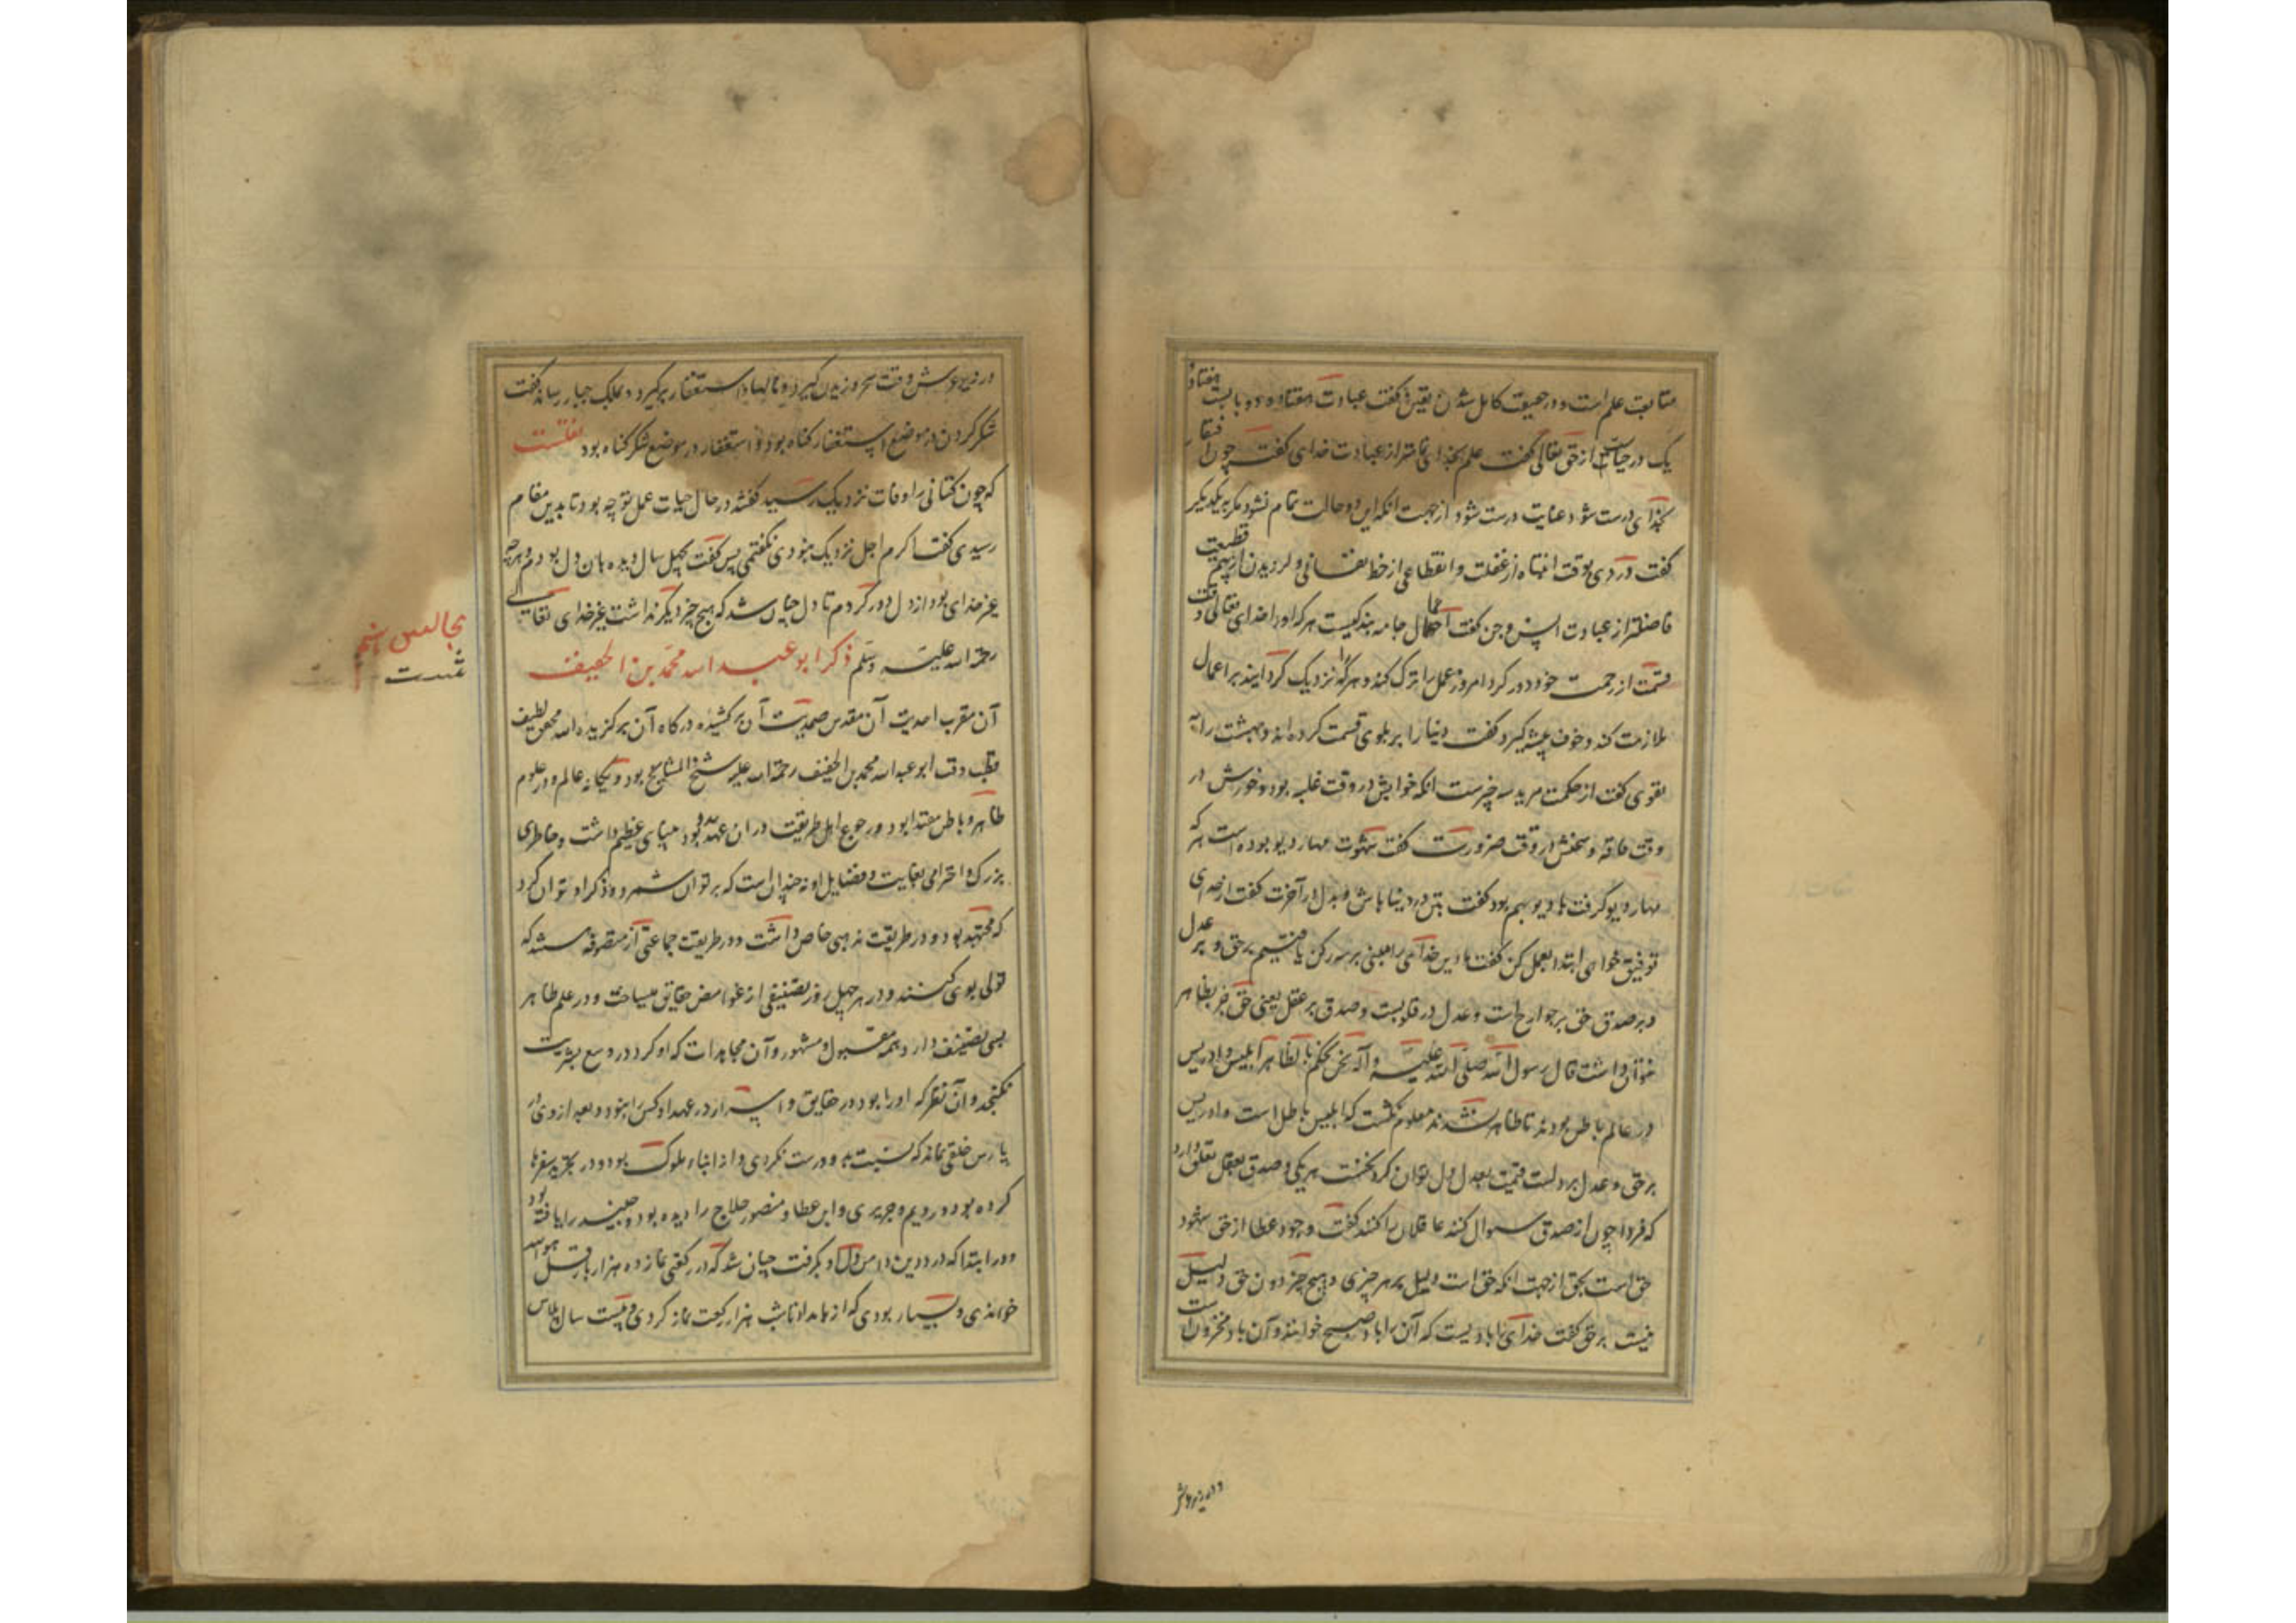 متابعت علم است و در حقیقت کامل شدن یقین گفت عبادت هفتاد و دو بابست هفتاد
یک در حیاست از حق تعالی گفت علم بخدای تمامتر از عبادت خدای گفت چون افتقار
بخدای درست شود عنایت درست شود از جهت آنکه این دو حالت تمام نشود مگر بیکدیگر
گفت دردی بوقت انتباه از غفلت و انقطاعی از حظ نفسانی و لرزیدن از بیم قطیعت
فاضلتر از عبادت انس و جن گفت اعمال جامه بندگیست هرکرا او را خدای تعالی وقت
قسمت از رحمت خود دور کرد امروز عمل را ترک کند و هرکرا نزدیک گردانید بر اعمال
ملازمت کند و خوف پیشه گیرد گفت دنیا را بر بلوی قسمت کرده اند و بهشت را به
تقوی گفت از حکمت مرید سه چیزست آنکه خوابش در وقت غلبه بود و خورش در
وقت فاقه و سخنش در وقت ضرورت گفت شهوت مهار دیو بوده است هر که
مهار دیو گرفت با دیو بهم بود گفت بتن در دنیا باش و بدل در آخرت گفت از خدای
توفیق خواهی ابتدا بعمل کن گفت ما دین خدای را مبنی بر سه رکن یافتیم بر حق و بر عدل
و بر صدق حق بر جوارح است و عدل در قلوبست و صدق بر عقل یعنی حق جز بظاهر
نتوان داشت قال رسول الله صلی الله علیه و آله نحن نحکم بالظاهر ابلیس و ادریس
در عالم باطن بودند تا ظاهر نشدند معلوم نگشت که ابلیس باطل است و ادریس
بر حق و عدل بر دلست قسمت بعدل دل توان کرد بحسب هر یکی و صدق بعقل تعلق دارد
که فردا چون از صدق سوال کنند عاقلان را کنند گفت وجود عطا از حق شهود
حق است بحق از جهت آنکه حق است دلیل بر هر چیزی و هیچ چیز دون حق دلیل
نیست بر حق گفت خدای را بادیست که آن را باد صبح خوانند و آن باد مخزون است
در زیر عرش
در زیر عرش وقت سحر وزیدن گیرد و نالها و استغفار برگیرد و بملک جبار رساند گفت
شکر کردن در موضع استغفار گناه بود و استغفار در موضع شکر گناه بود نقلست
که چون کتانی را وفات نزدیک رسید گفتند در حال حیات عمل تو چه بود تا بدین مقام
رسیدی گفت اگرم اجل نزدیک نبودی نگفتمی پس گفت چهل سال دیده بان دل بودم و هرچه
غیر خدای بود از دل دور کردم تا دل چنان شد که هیچ چیز دیگر نداشت غیر خدای تعالی
رحمة الله علیه وسلم ذکر ابو عبد الله محمد بن الخفیف
مجالس پنجم
شست
آن مقرب احدیت آن مقدس صمدیت آن برکشیده درگاه آن برگزیده الله محض لطیف
قطب وقت ابو عبد الله محمد بن الخفیف رحمة الله علیه شیخ المشایخ بود و یگانه عالم و در علوم
ظاهر و باطن مقتدا بود و رجوع اهل طریقت در آن عهد بدو بود بینای عظیم داشت و خاطری
بزرگ و احترامی بغایت و فضایل او نه چندان است که بر توان شمرد و ذکر او توان کرد
که مجتهد بود و در طریقت مذهبی خاص داشت و در طریقت جماعتی از متصوفه هستند که
تولی بوی کنند و در هر چهل روز تصنیفی از غوامض حقایق میساخت و در علم ظاهر
بسی تصنیف دارد همه مقبول و مشهور و آن مجاهدات که او کرد در وسع بشریت
نگنجد و آن نظر که او را بود در حقایق و اسرار در عهد او کس را نبود و بعد از وی در
پارس خلفی نماند که نسبت بدو درست نکردی و از ابناء ملوک بود و در تجرید سفرها
کرده بود و رویم و جریری و ابن عطا و منصور حلاج را دیده بود و جنید را یافته بود
و در ابتدا که درد دین دامن دل او بگرفت چنان شد که در رکعتی نماز ده هزار بار قل هو الله
خواندی و بسیار بودی که از بامداد تا شب هزار رکعت نماز کردی و بیست سال پلاس